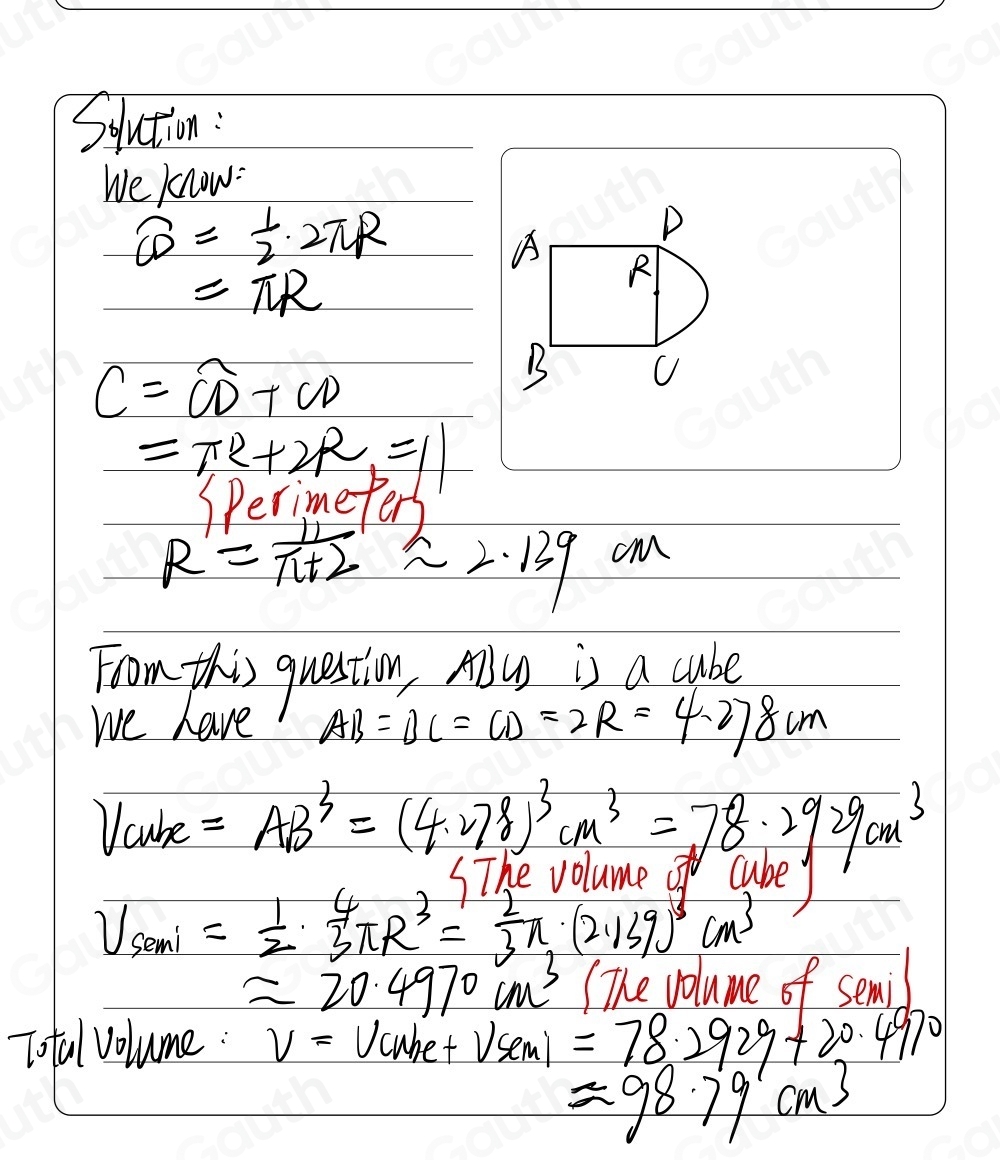 Solution:
We know:
⌢CD = 1/2 · 2πR
= πR
A
D
R
B
C
C = ⌢CD + CD
= πR + 2R = 11
{Perimeter}
R = 11/(π+2) ≈ 2.139 cm
From this question, ABCD is a cube
We have AB = BC = CD = 2R = 4.278 cm
Vcube = AB³ = (4.278)³ cm³ = 78.2929 cm³
{The volume of cube}
Vsemi = 1/2 · 4/3 πR³ = 2/3 π · (2.139)³ cm³
≈ 20.4970 cm³ {The volume of semi}
Total Volume: V = Vcube + Vsemi = 78.2929 + 20.4970
≈ 98.79 cm³
Gauth